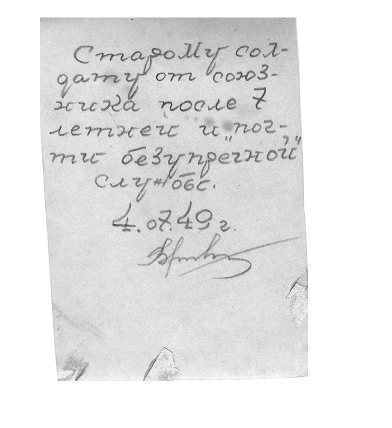 Старому сол-
дату от союз-
ника после 7
летней и "поч-
ти безупречной"
служобс.
4.07.49 г.